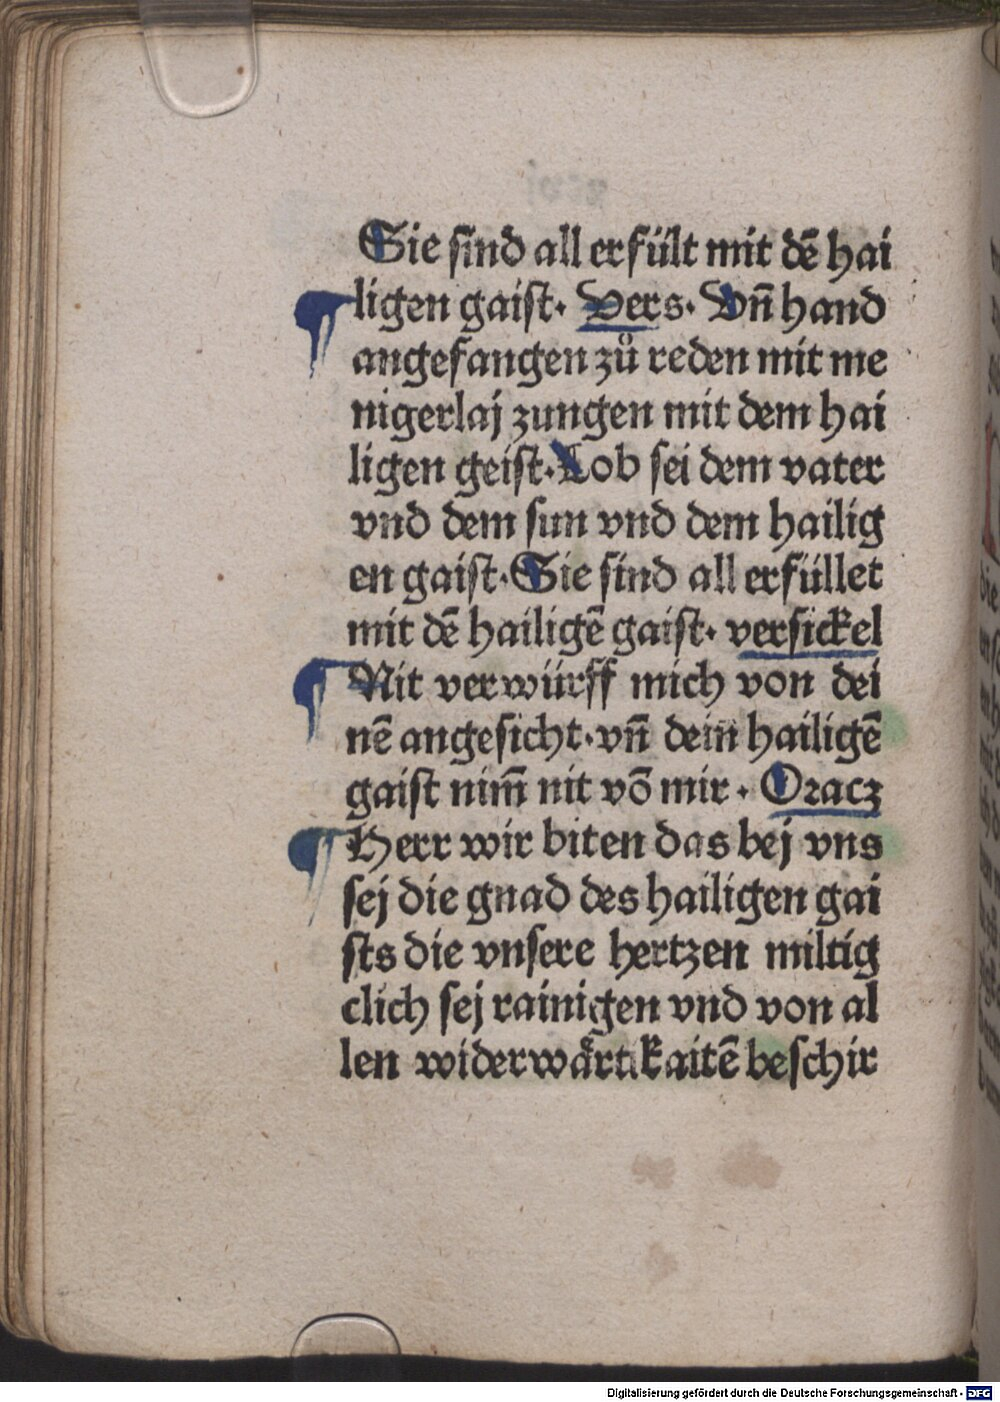 Sie sind all erfült mit dē hai
ligen gaist· Vers· Vn̄ hand
angefangen zů reden mit me
nigerlaj zungen mit dem hai
ligen geist· Lob sei dem vater
vnd dem sun vnd dem hailig
en gaist· Sie sind all erfüllet
mit dē hailigē gaist· versickel
Nit verwürff mich von dei
nē angesicht· vn̄ dein̄ hailigē
gaist nim̄ nit vō mir· Oracz
Herr wir biten das bej vns
sej die gnad des hailigen gai
sts die vnsere hertzen miltig
clich sej rainigen vnd von al
len widerwärtikaitē beschir
Digitalisierung gefördert durch die Deutsche Forschungsgemeinschaft - DFG